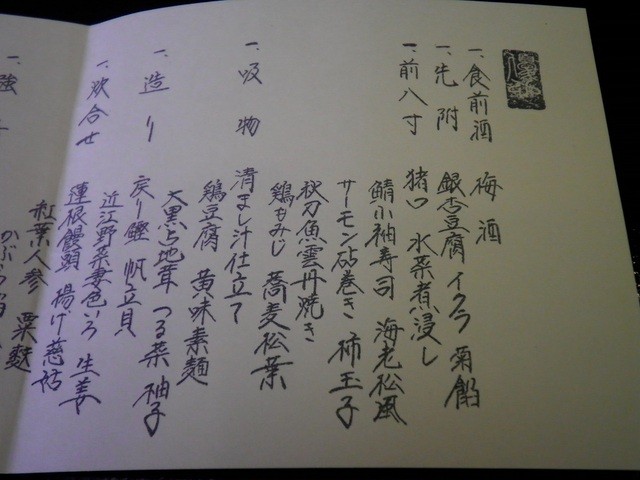 一、食前酒 梅酒
一、先附 銀杏豆腐 イクラ 菊餡
一、前八寸 猪口 水菜煮浸し
鯖小袖寿司 海老松風
サーモン砧巻き 柿玉子
秋刀魚雲丹焼き
鶏もみじ 蕎麦松葉
一、吸物 清まし汁仕立て
鶏豆腐 黄味素麺
大黒占地茸 つる菜 柚子
一、造り 戻り鰹 帆立貝
近江野菜妻色いろ 生姜
一、炊合せ 蓮根饅頭 揚げ慈姑
紅葉人参 粟麩
かぶら
一、強